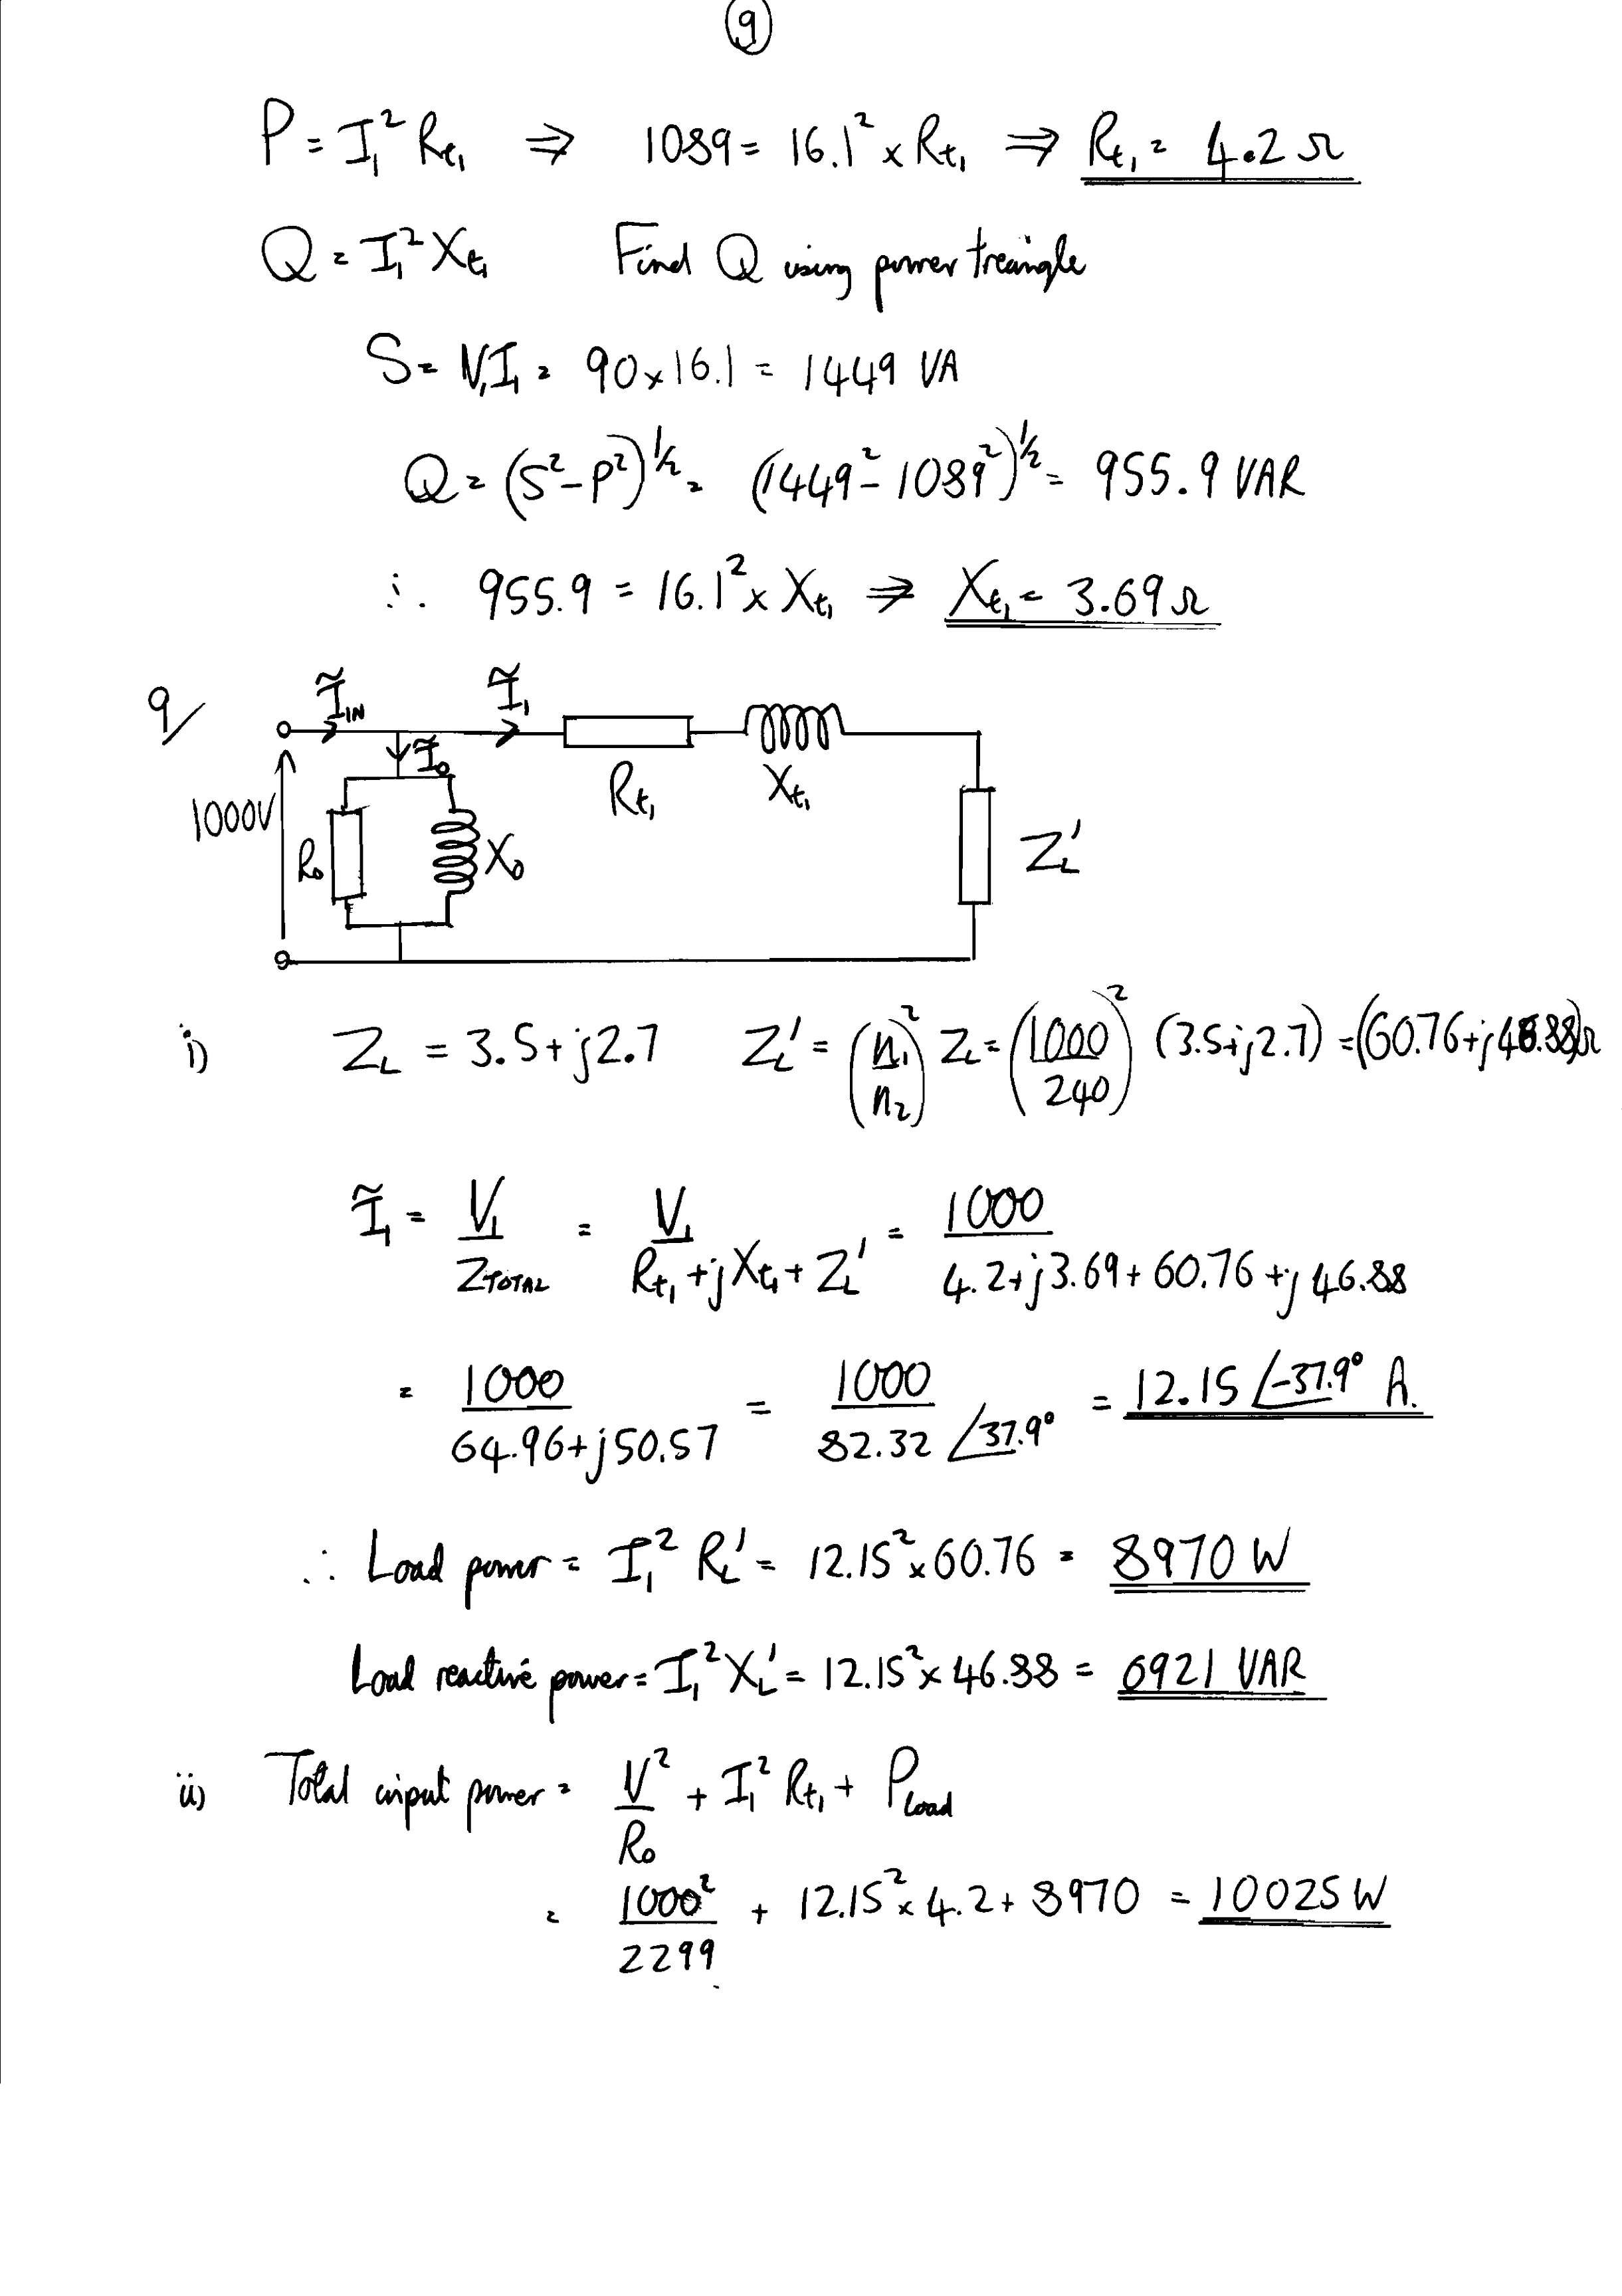 9
P = I₁² Rt₁ ⇒ 1089 = 16.1² × Rt₁ ⇒ Rt₁ = 4.2 Ω
Q = I₁² Xt₁ Find Q using power treiangle
S = V₁I₁ = 90 × 16.1 = 1449 VA
Q = (S² – P²)^½ = (1449² – 1089²)^½ = 955.9 VAR
∴ 955.9 = 16.1² × Xt₁ ⇒ Xt₁ = 3.69 Ω
9/
Ĩ_IN Ĩ₁
Ĩ₀
Rt₁ Xt₁
1000V R₀ X₀ Z_L'
i) Z_L = 3.5 + j2.7 Z_L' = (n₁/n₂)² Z_L = (1000/240)² (3.5 + j2.7) = (60.76 + j46.88) Ω
Ĩ₁ = V₁/Z_TOTAL = V₁/(Rt₁ + jXt₁ + Z_L') = 1000/(4.2 + j3.69 + 60.76 + j46.88)
= 1000/(64.96 + j50.57) = 1000/(82.32 ∠37.9°) = 12.15 ∠-37.9° A.
∴ Load power = I₁² R_L' = 12.15² × 60.76 = 8970 W
Load reactive power = I₁² X_L' = 12.15² × 46.88 = 6921 VAR
ii) Total input power = V²/R₀ + I₁² Rt₁ + P_Load
= 1000²/2299 + 12.15² × 4.2 + 8970 = 10025 W